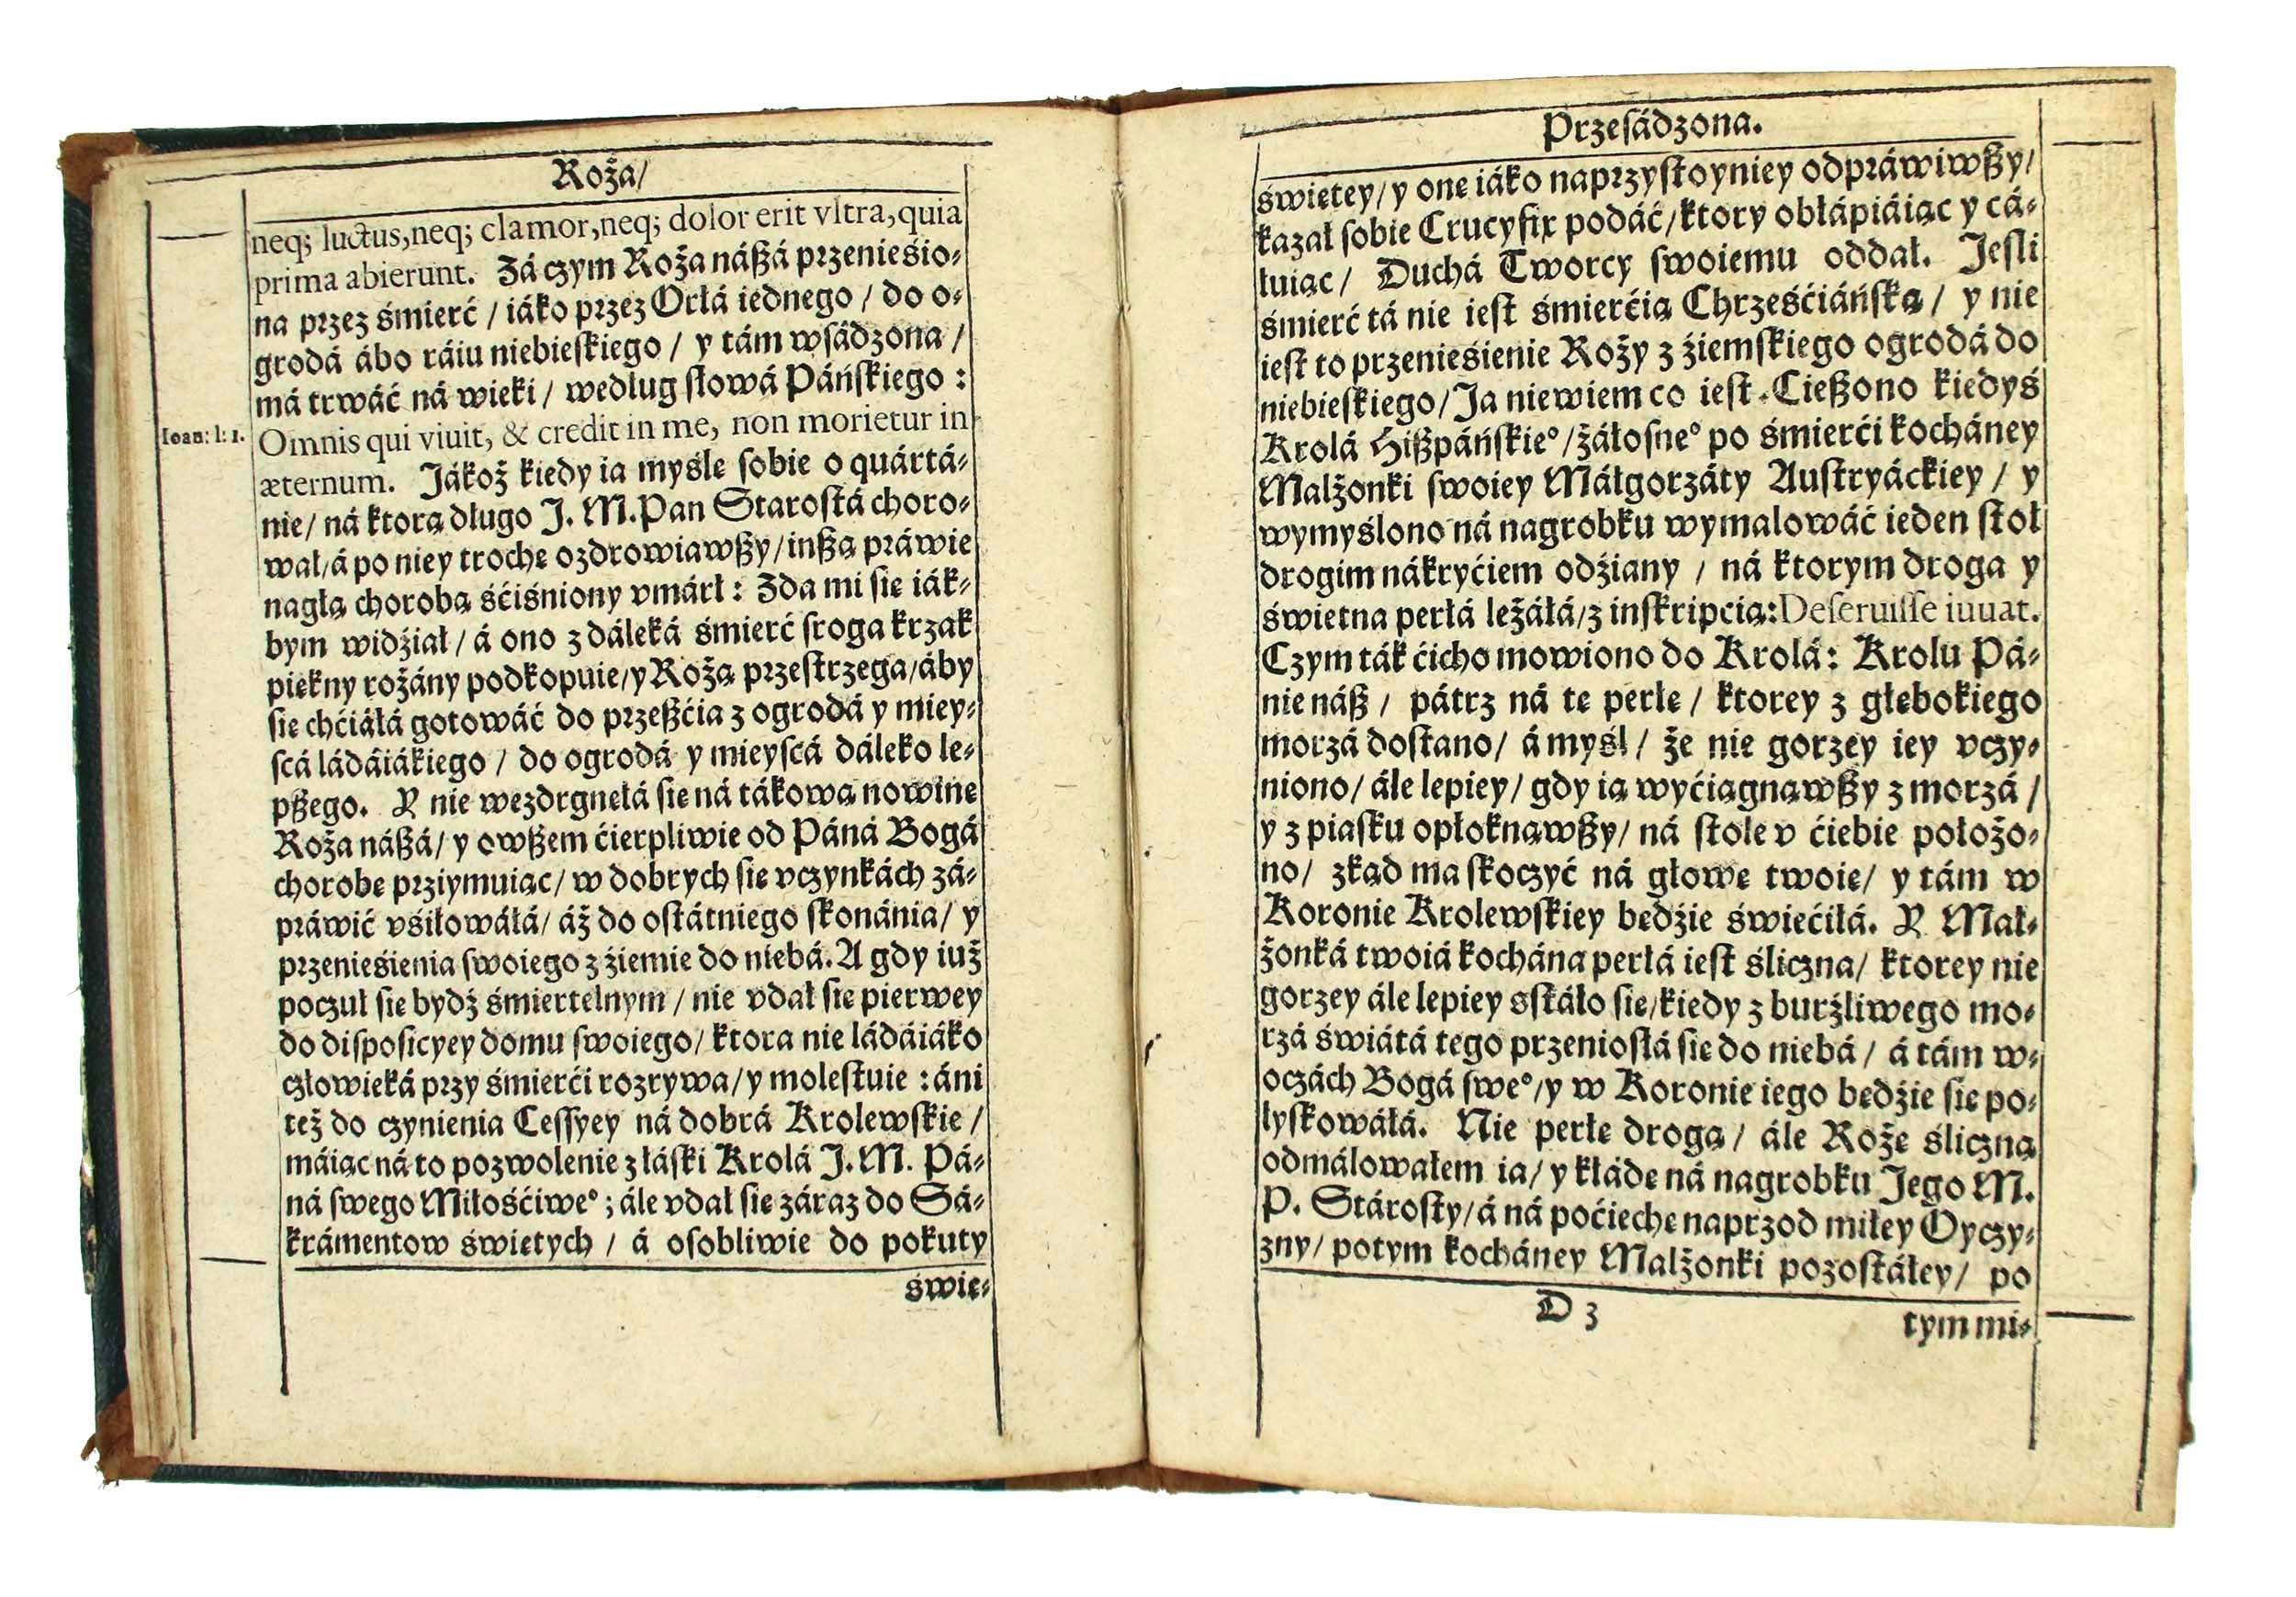 Roża/
neq; luctus, neq; clamor, neq; dolor erit vltra, quia
prima abierunt. Zá czym Roża nászá przeniesio-
na przez śmierć / iáko przez Orłá iednego / do o-
grodá ábo ráiu niebieskiego / y tám wsádzona /
má trwáć ná wieki / według słowá Páńskiego :
Ioan: l: 1.
Omnis qui viuit, & credit in me, non morietur in
æternum. Jákoż kiedy ia myślę sobie o quártá-
nie / ná ktorą długo J. M. Pan Starostá choro-
wał / á po niey trochę ozdrowiawszy / inszą práwie
nagłą chorobą śćiśniony vmárł : Zda mi się iák-
bym widźiał / á ono z dáleká śmierć sroga krzak
piękny rożány podkopuie / y Rożą przestrzega / áby
się chćiáłá gotowáć do prześćia z ogrodá y miey-
scá ládáiákiego / do ogrodá y mieyscá dáleko le-
pszego. Y nie wezdrgnęłá się ná tákową nowinę
Roża nászá / y owszem ćierpliwie od Páná Bogá
chorobę prziymuiąc / w dobrych się vczynkách zá-
práwić vśiłowáłá / áż do ostátniego skonánia / y
przeniesienia swoiego z źiemie do niebá. A gdy iuż
poczuł się bydź śmiertelnym / nie vdał się pierwey
do disposicyey domu swoiego / ktora nie ládáiáko
człowieká przy śmierći rozrywa / y molestuie : áni
też do czynienia Cessyey ná dobrá Krolewskie /
máiąc ná to pozwolenie z łáski Krolá J. M. Pá-
ná swego Miłośćiwe° ; ále vdał się záraz do Sá-
krámentow świętych / á osobliwie do pokuty
świę-
Przesádzona.
świętey / y onę iáko naprzystoyniey odpráwiwszy /
kazał sobie Crucyfix podáć / ktory obłápiáiąc y cá-
łuiąc / Duchá Tworcy swoiemu oddał. Jesli
śmierć tá nie iest śmierćią Chrześćiáńską / y nie
iest to przeniesienie Roży z źiemskiego ogrodá do
niebieskiego / Ja niewiem co iest. Cieszono kiedyś
Krolá Hiszpáńskie° / żáłosne° po śmierći kocháney
Małżonki swoiey Máłgorzáty Austryáckiey / y
wymyślono ná nagrobku wymalowáć ieden stoł
drogim nákryćiem odźiany / ná ktorym droga y
świetna perłá leżáłá / z inskripcią : Deseruisse iuuat.
Czym ták ćicho mowiono do Krolá : Krolu Pá-
nie nász / pátrz ná tę perłę / ktorey z głębokiego
morzá dostano / á myśl / że nie gorzey iey vczy-
niono / ále lepiey / gdy ią wyćiągnąwszy z morzá /
y z piasku opłoknąwszy / ná stole v ćiebie położo-
no / zkąd ma skoczyć ná głowę twoię / y tám w
Koronie Krolewskiey będźie świećiłá. Y Mał-
żonká twoiá kochána perłá iest śliczna / ktorey nie
gorzey ále lepiey zstáło się / kiedy z burźliwego mo-
rzá świátá tego przeniosłá się do niebá / á tám w-
oczách Bogá swe° / y w Koronie iego będźie się po-
łyskowáłá. Nie perłę drogą / ále Rożę śliczną
odmálowałem ia / y kłádę ná nagrobku Jego M.
P. Stárosty / á ná poćiechę naprzod miłey Oyczy-
zny / potym kocháney Małżonki pozostáłey / po
D 3
tym mi-